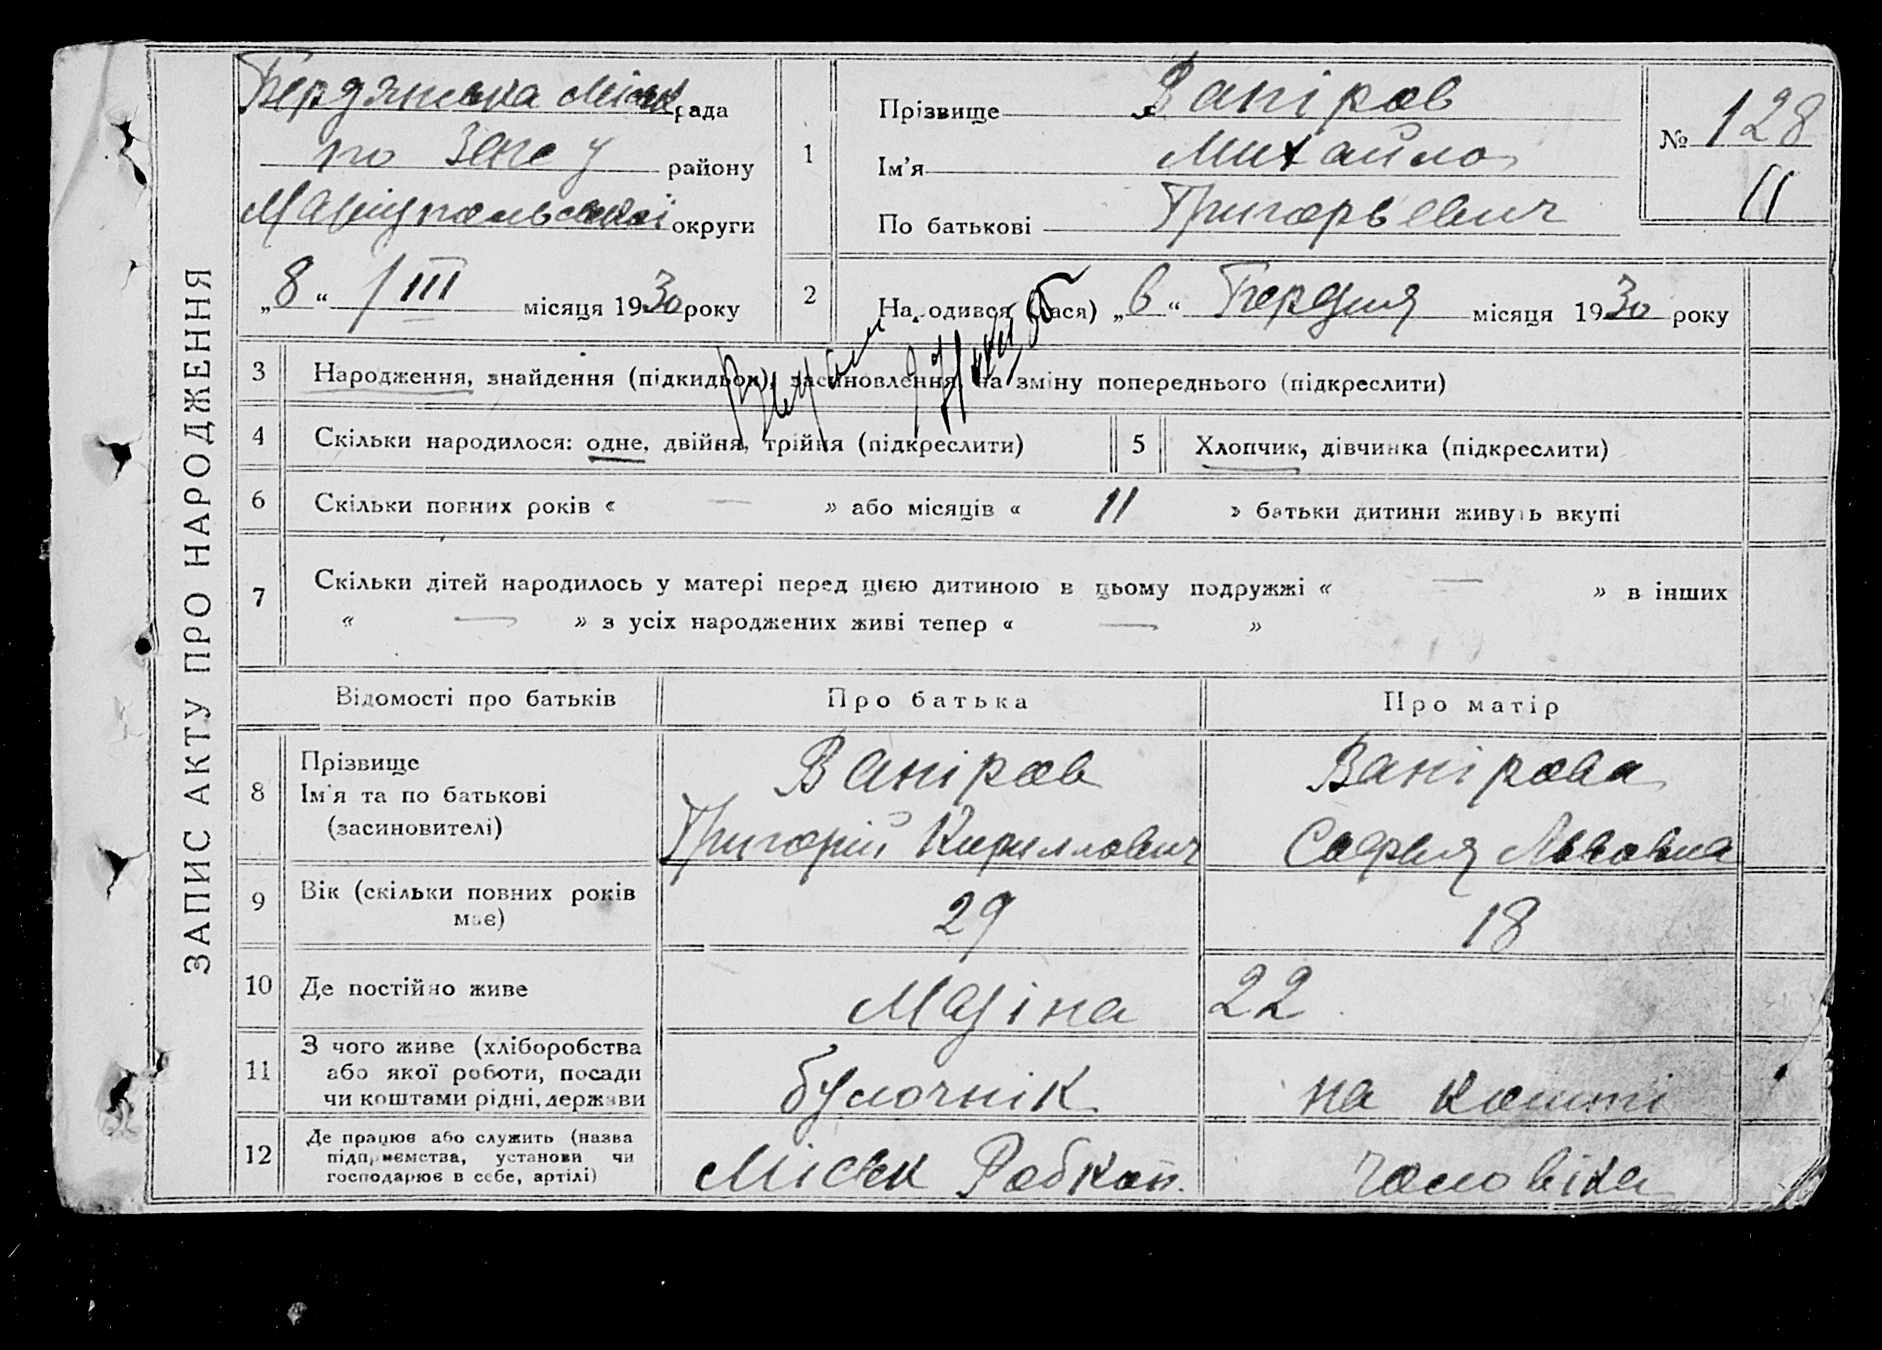 ЗАПИС АКТУ ПРО НАРОДЖЕННЯ
Бердянська Міськ рада
по Загсу району
Маріупольської округи
„8“ / III місяця 1930 року
1
Прізвище Ваніров
Ім'я Михайло
По батькові Григорьевич
№ 128
11
2 Народився (лася) „6“ Березня місяця 1930 року
3 Народження, знайдення (підкидьок), засиновлення, на зміну попереднього (підкреслити)
4 Скільки народилося: одне, двійня, трійня (підкреслити)
5 Хлопчик, дівчинка (підкреслити)
6 Скільки повних років « — » або місяців « 11 » батьки дитини живуть вкупі
7 Скільки дітей народилось у матері перед цією дитиною в цьому подружжі « — » в інших
« — » з усіх народжених живі тепер « — »
Відомості про батьків Про батька Про матір
8 Прізвище
Ім'я та по батькові
(засиновителі)
Ваніров
Григорій Кириллович
Ванірова
Софья Львовна
9 Вік (скільки повних років
має)
29
18
10 Де постійно живе
22
11 З чого живе (хліборобства
або якої роботи, посади
чи коштами рідні, держави
булочнік
на кошті
12 Де працює або служить (назва
підприємства, установи чи
господарює в себе, артілі)
Міськ Робкоп.
чоловіка